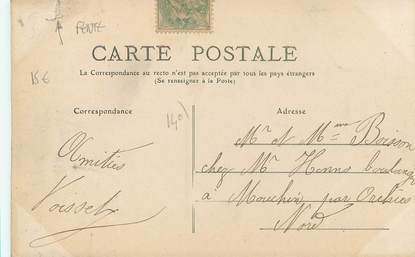 FENTE
15€
CARTE POSTALE
La Correspondance au recto n'est pas acceptée par tous les pays étrangers
(Se renseigner à la Poste)
Correspondance
Adresse
1401
Mr et Mme Boisson
chez Mr Henns boulanger
à Mouchin par Orchies
Nord
Amitiés
Voisset